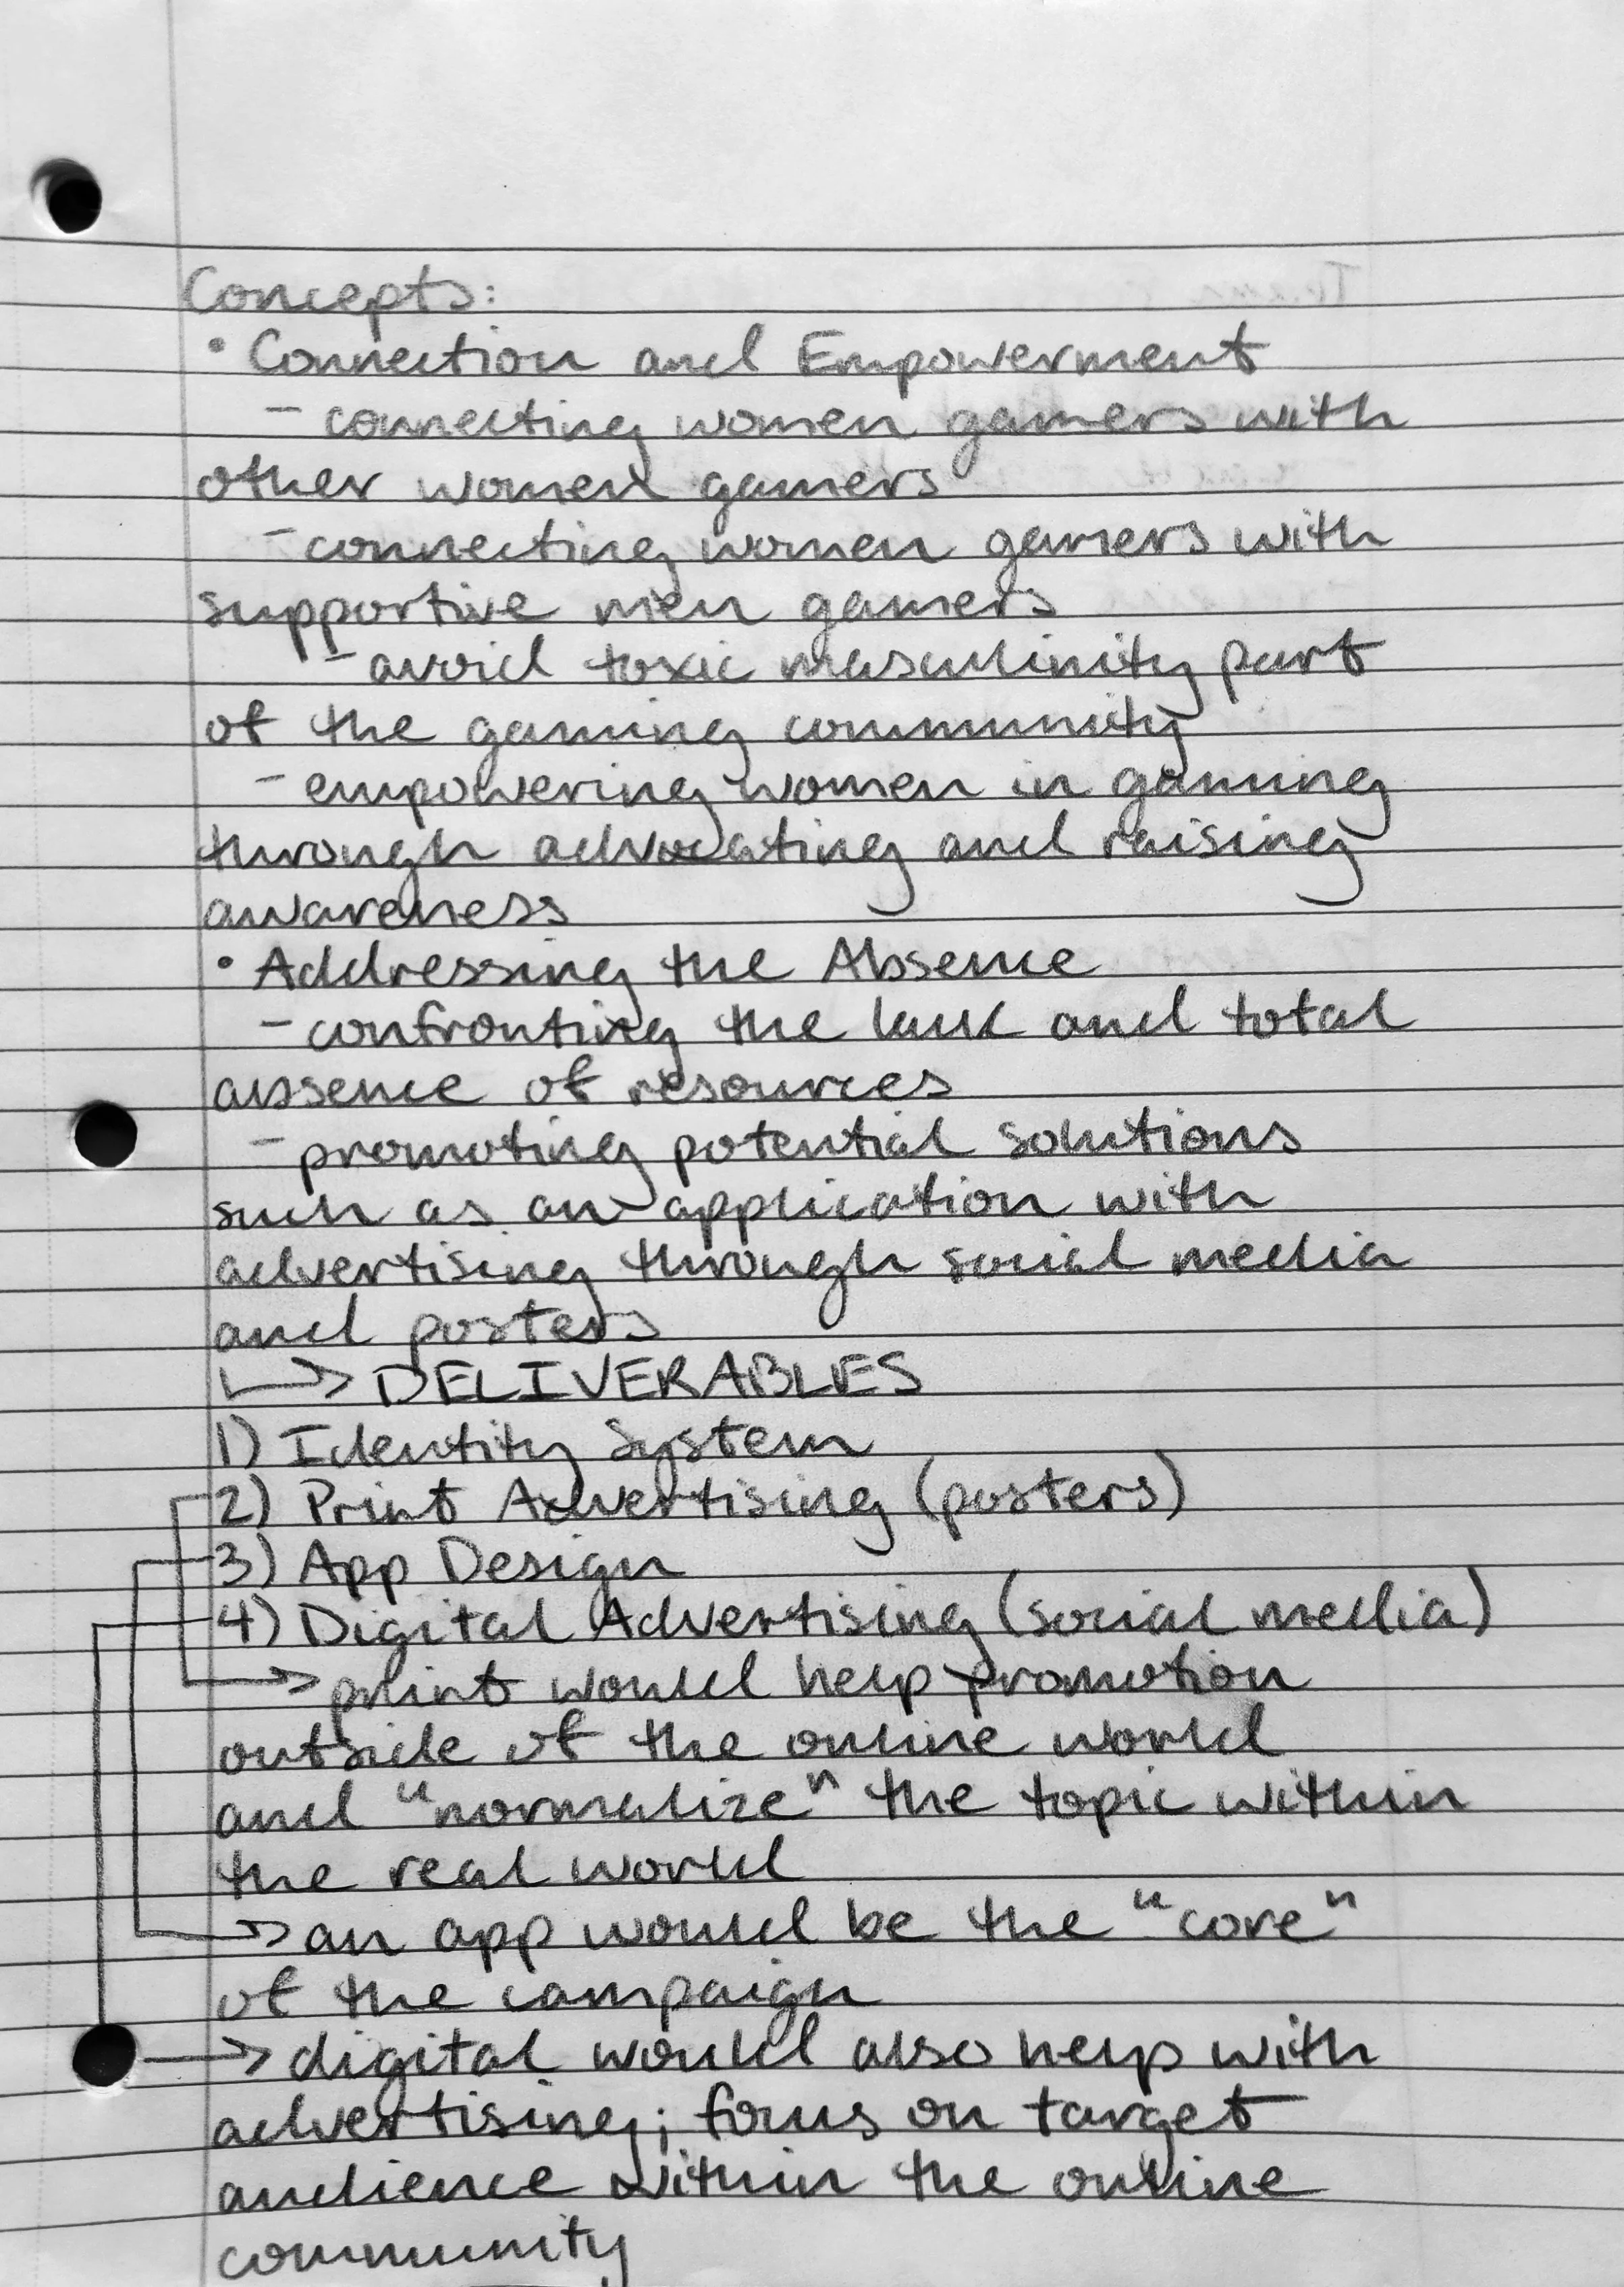 Concepts:
• Connection and Empowerment
- connecting women gamers with
other women gamers
- connecting women gamers with
supportive men gamers
- avoid toxic masculinity part
of the gaming community
- empowering women in gaming
through advocating and raising
awareness
• Addressing the Absence
- confronting the lack and total
absence of resources
- promoting potential solutions
such as an application with
advertising through social media
and posters
↳ DELIVERABLES
1) Identity System
2) Print Advertising (posters)
3) App Design
4) Digital Advertising (social media)
→ print would help promotion
outside of the online world
and "normalize" the topic within
the real world
→ an app would be the "core"
of the campaign
→ digital would also help with
advertising; focus on target
audience within the online
community